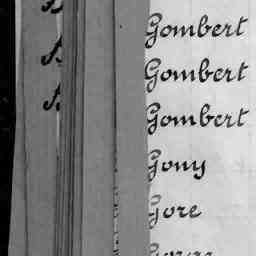 Gombert
Gombert
Gombert
Gony
Gore